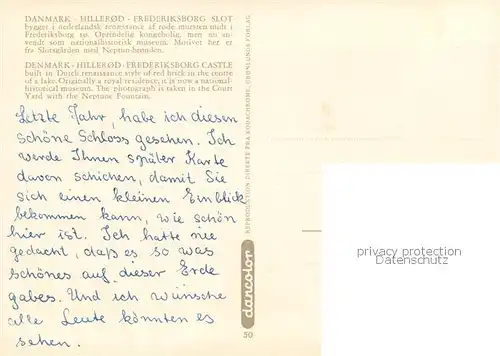 DANMARK - HILLERØD - FREDERIKSBORG SLOT
bygget i nederlandsk renæssance af røde mursten midt i
Frederiksborg sø. Oprindelig kongebolig, men nu an-
vendt som nationalhistorisk museum. Motivet her er
fra Slotsgården med Neptun-brønden.
DENMARK - HILLERØD - FREDERIKSBORG CASTLE
built in Dutch renaissance style of red brick in the centre
of a lake. Originally a royal residence, it is now a national-
historical museum. The photograph is taken in the Court
Yard with the Neptune Fountain.
Letzte Jahr, habe ich diesen
schöne Schloss gesehen. Ich
werde Ihnen später Karte
davon schichen, damit Sie
sich einen kleinen Einblick
bekommen kann, wie schön
hier ist. Ich hatte nie
gedacht, daß es so was
schönes auf dieser Erde
gabes. Und ich wünsche
alle Leute könnten es
sehen.
REPRODUKTION DIREKTE FRA KODACHROME, GRØNLUNDS FORLAG
dancolor
50
privacy protection
Datenschutz